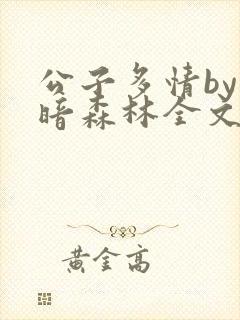 公子多情by
暗森林全文
黄金高